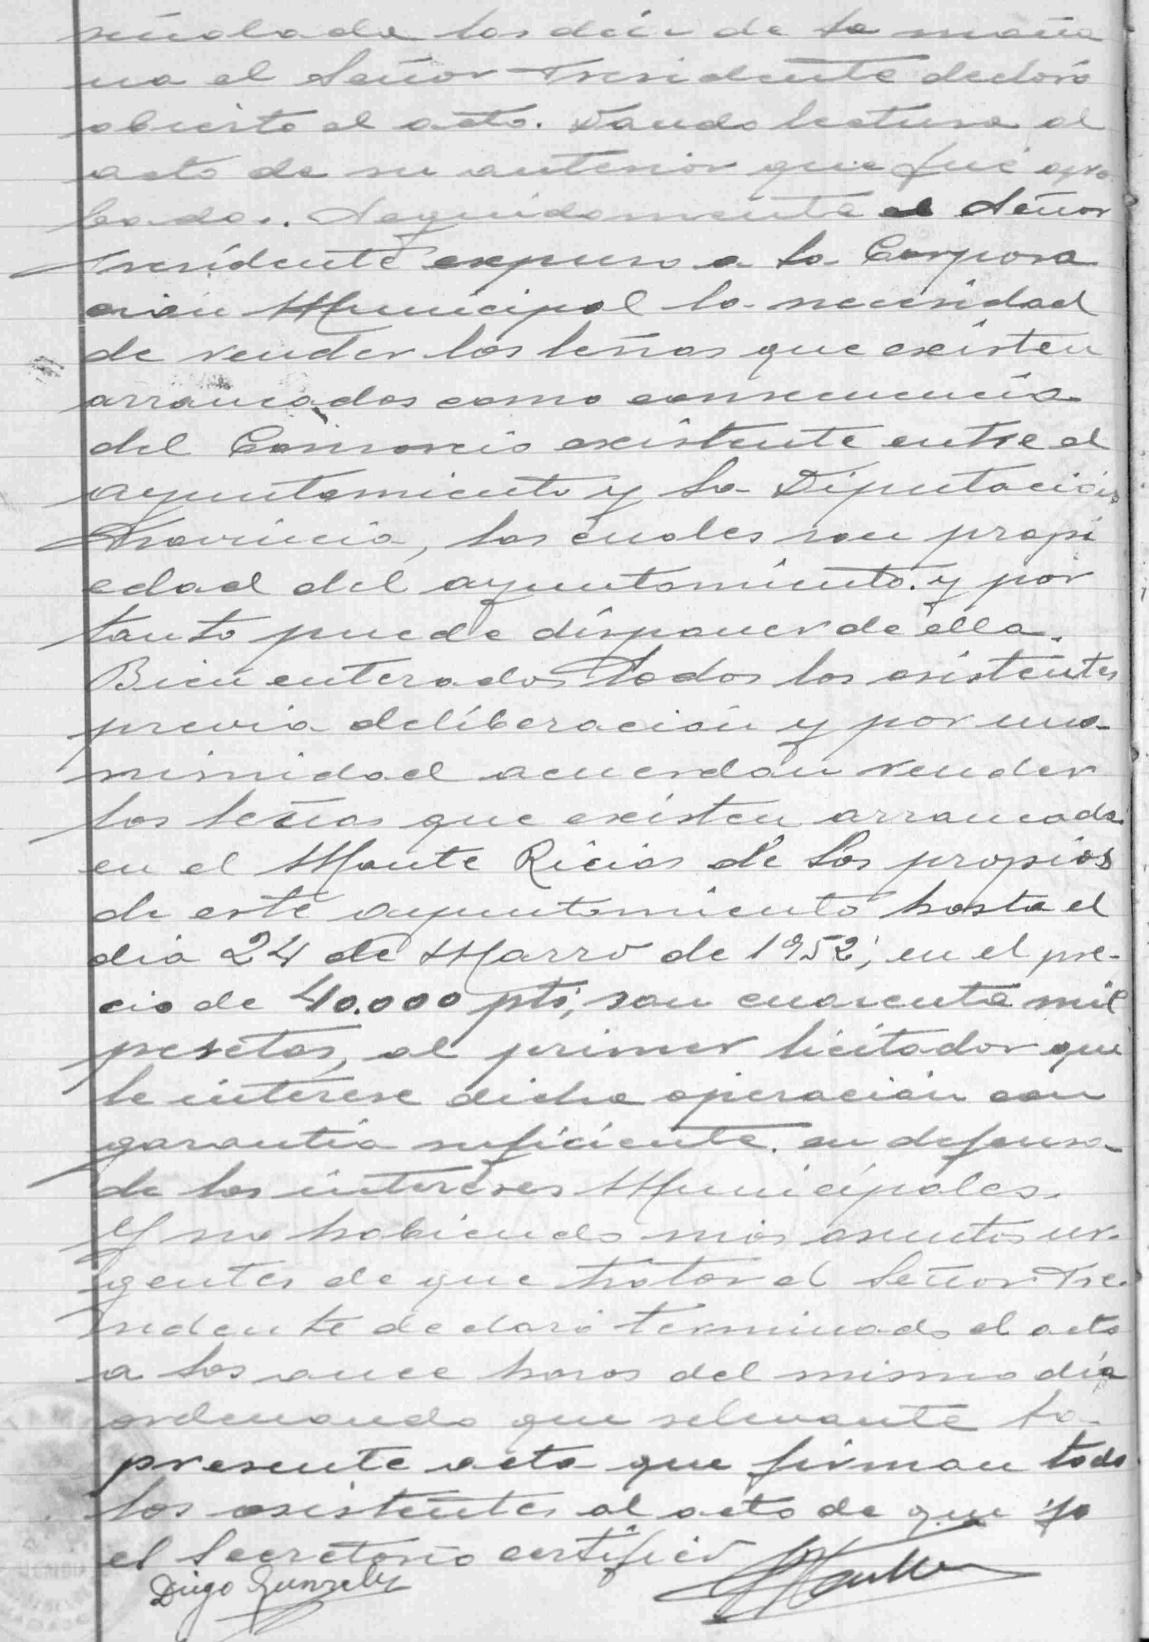 señalada las diez de la maña
na el Señor Presidente declaró
abierto el acto. Dando lectura al
acta de su anterior que fué apro
bada. Seguidamente el Señor
Presidente expuso a la Corpora
ción Municipal la necesidad
de vender las leñas que existen
arrancadas como consecuencia
del Consorcio existente entre el
ayuntamiento y la Diputación
Provincia, las cuales son propi
edad del ayuntamiento. y por
tanto puede disponer de ella.
Bien enterados todos los asistentes
previa deliberación y por una
nimidad acuerdan vender
las leñas que existen arrancada
en el Monte Ricias de los propios
de este ayuntamiento hasta el
dia 24 de Marzo de 1952; en el pre-
cio de 40.000 pts; son cuarenta mil
pesetas, al primer licitador que
le interese dicha operación con
garantia suficiente. en defensa
de los intereses Municipales.
Y no habiendo más asuntos ur-
gentes de que tratar el Señor Pre-
sidente declaró terminado el acto
a las once horas del mismo día
ordenando que selevante la
presente acta que firman todo
los asistentes al acto de que yo
el Secretario certifico
Diego Gonzalez